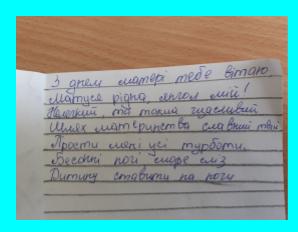 З днем матері тебе вітаю,
Матуся рідна, янгол мій!
Нелегкий, та такий щасливий
Шлях материнства славний твій
Прости мені усі турботи,
Безсонні ночі, море сліз
Дитину ставити на ноги